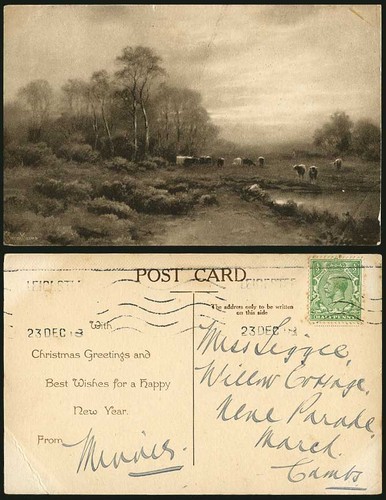 POST CARD.
LEICESTER
LEICESTER
The address only to be written
on this side
23 DEC
23 DEC
With
Christmas Greetings and
Best Wishes for a Happy
New Year.
From
Minnie.
Miss Seggee,
Willow Cottage,
Nene Parade,
March.
Cambs.